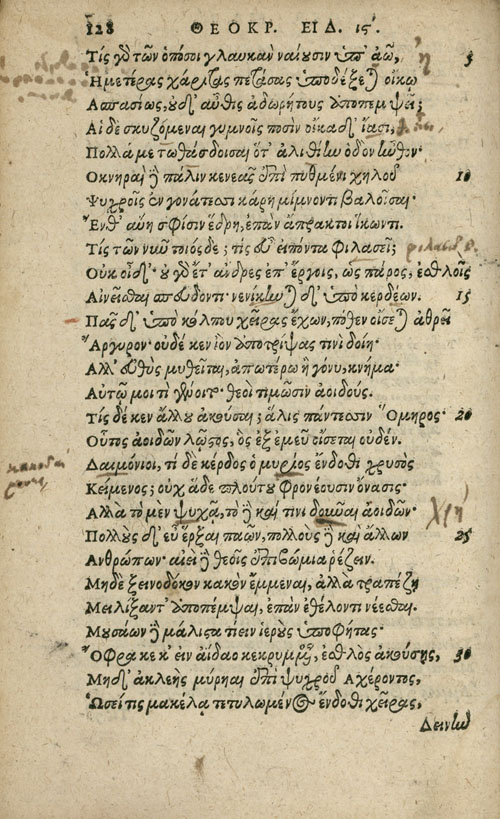 128 ΘΕΟΚΡ. ΕΙΔ. ις.
Τίς γὸ τῶν ὁπόσοι γλαυκὰν ναίουσιν ὑπ' ἀῶ, 5
Ἡμετέρας χάριτας πετάσας ὑποδέξεται οἴκῳ
Ἀσπασίως, οὐδ' αὖθις ἀδωρήτους ἀποπεμψεῖ;
Αἱ δὲ σκυζόμεναι γυμνοῖς ποσὶν οἴκαδ' ἴασι,
Πολλά με τωθάσδοισαι ὅτ' ἀλιθίην ὁδὸν ἦνθον·
Ὀκνηραὶ δὲ πάλιν κενεᾶς ἐπὶ πυθμένι χηλοῦ 10
Ψυχροῖς ἐν γονάτεσσι κάρη μίμνοντι βαλοῖσαι·
Ἔνθ' αὔη σφίσιν ἕδρη, ἐπὰν ἄπρακτοι ἵκωντι.
Τίς τῶν νῦν τοιόσδε; τίς εὖ εἰπόντα φιλασεῖ;
Οὐκ οἶδ'· οὐ γὸ ἔτ' ἄνδρες ἐπ' ἔργοις, ὡς πάρος, ἐσθλοῖς
Αἰνεῖσθαι σπεύδοντι· νενίκηνται δ' ὑπὸ κερδέων. 15
Πᾶς δ' ὑπὸ κόλπου χεῖρας ἔχων, πόθεν οἴσεται ἀθρεῖ
Ἄργυρον· οὐδέ κεν ἰὸν ἀποτρίψας τινὶ δοίη·
Ἀλλ' εὐθὺς μυθεῖται, ἀπωτέρω ἢ γόνυ, κνήμα·
Αὐτῷ μοί τι γένοιτο· θεοὶ τιμῶσιν ἀοιδούς.
Τίς δέ κεν ἄλλου ἀκούσαι; ἅλις πάντεσσιν Ὅμηρος· 20
Οὗτος ἀοιδῶν λῷστος, ὃς ἐξ ἐμεῦ οἴσεται οὐδέν.
Δαιμόνιοι, τί δὲ κέρδος ὁ μυρίος ἔνδοθι χρυσὸς
Κείμενος; οὐχ ἅδε πλούτου φρονέουσιν ὄνασις·
Ἀλλὰ τὸ μὲν ψυχᾷ, τὸ δὲ καί τινι δοῦναι ἀοιδῶν·
Πολλοὺς δ' εὖ ἔρξαι παῶν, πολλοὺς δὲ καὶ ἄλλων 25
Ἀνθρώπων· αἰεὶ δὲ θεοῖς ἐπιβώμια ῥέζειν.
Μηδὲ ξεινοδόκον κακὸν ἔμμεναι, ἀλλὰ τραπέζῃ
Μειλίξαντ' ἀποπέμψαι, ἐπὰν ἐθέλοντι νέεσθαι.
Μουσάων δὲ μάλιστα τίειν ἱεροὺς ὑποφήτας·
Ὄφρα κε κ' εἰν ἀΐδαο κεκρυμμένος, ἐσθλὸς ἀκούσῃς, 30
Μηδ' ἀκλεὴς μύρηαι ἐπὶ ψυχροῦ Ἀχέροντος,
Ὡσεί τις μακέλᾳ τετυλωμένος ἔνδοθι χεῖρας,
Δεινὸν
ἢ
χρή